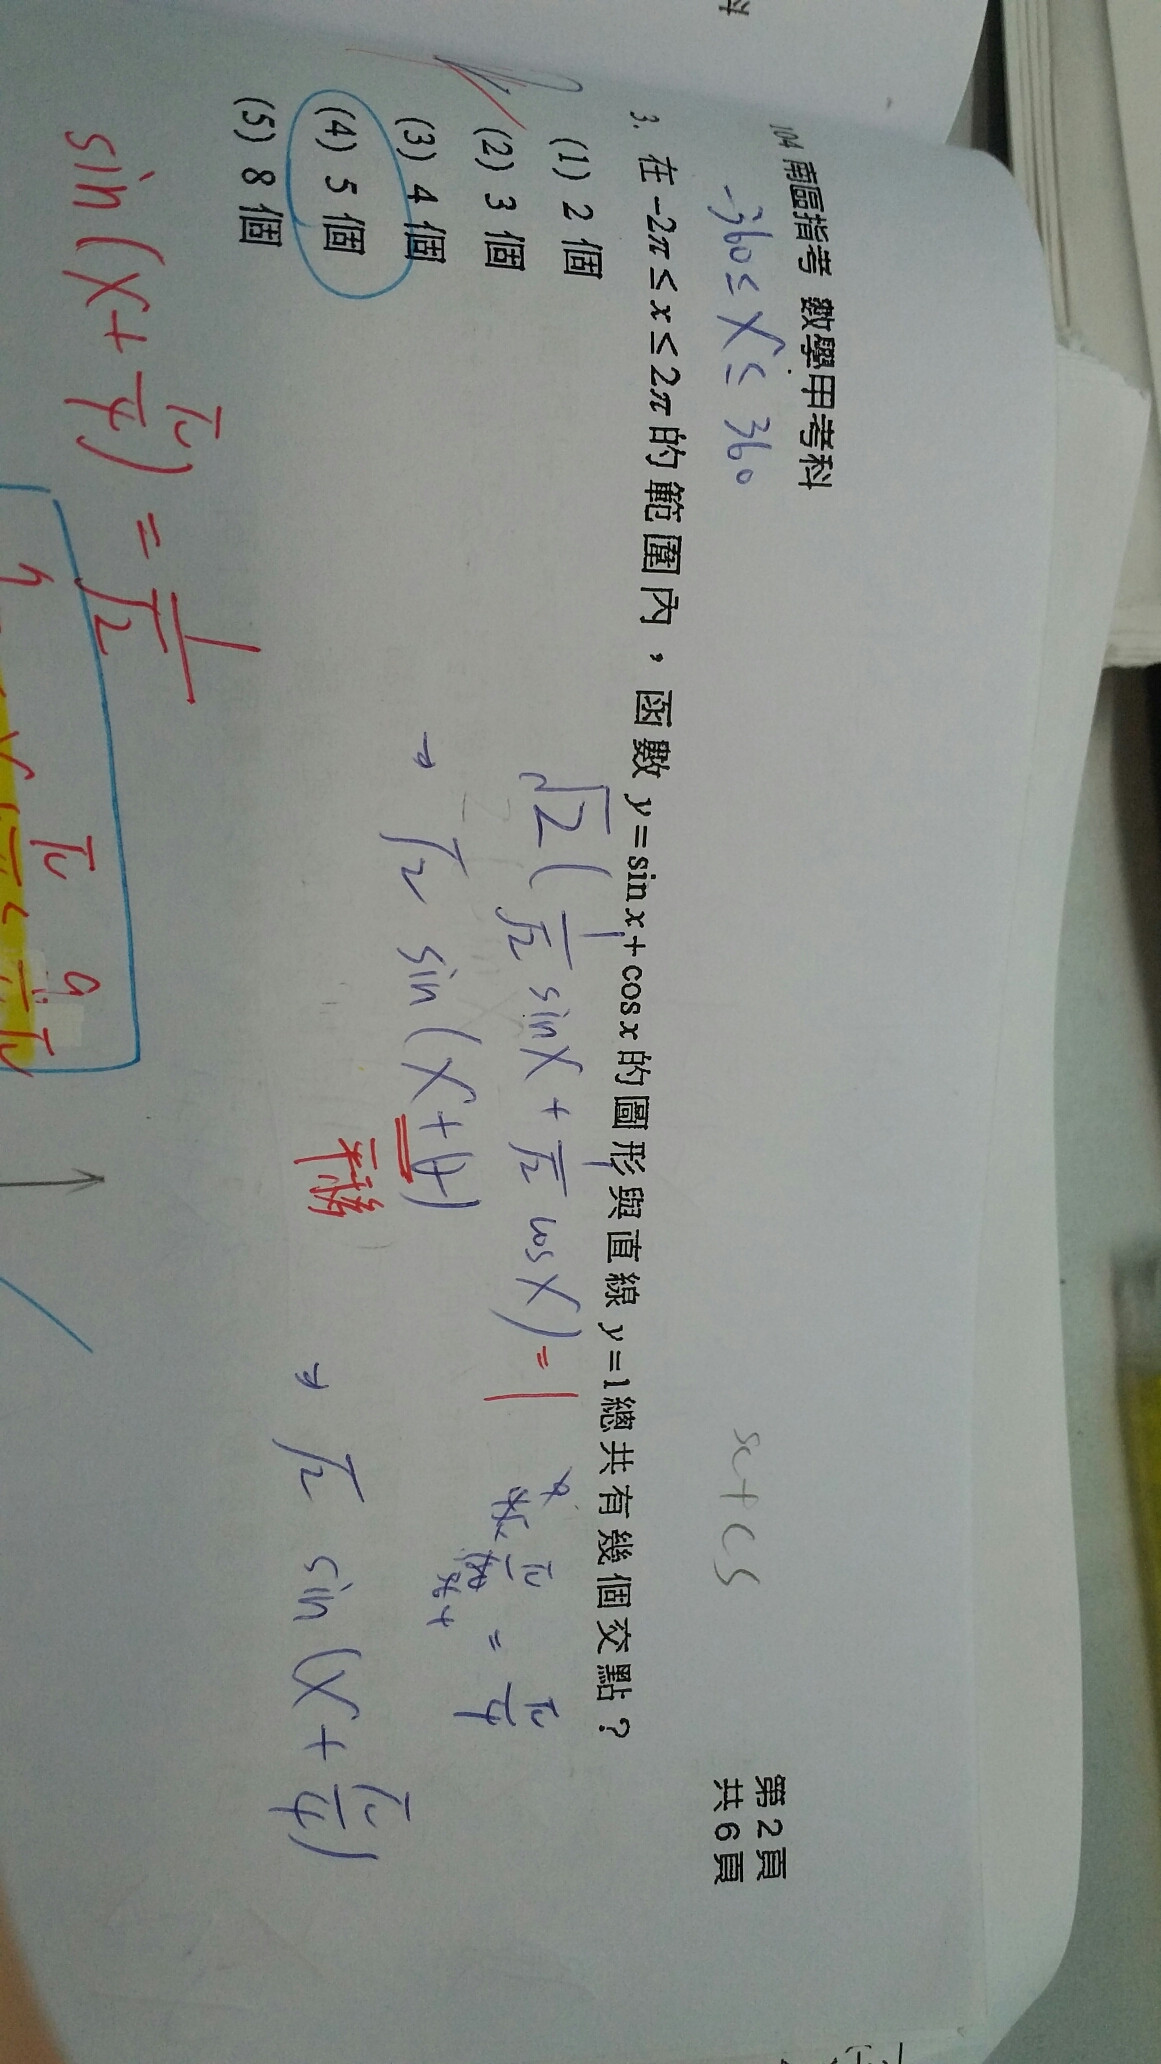 104 南區指考 數學甲考科
第2頁
共6頁
-360 ≤ X ≤ 360
3. 在 -2π ≤ x ≤ 2π 的範圍內，函數 y = sin x + cos x 的圖形與直線 y = 1 總共有幾個交點？
(1) 2 個
(2) 3 個
(3) 4 個
(4) 5 個
(5) 8 個
√2 ( 1/√2 sin X + 1/√2 cos X ) = 1
→ √2 sin ( X + φ )
平移
→ √2 sin ( X + π/4 )
sin ( X + π/4 ) = 1/√2